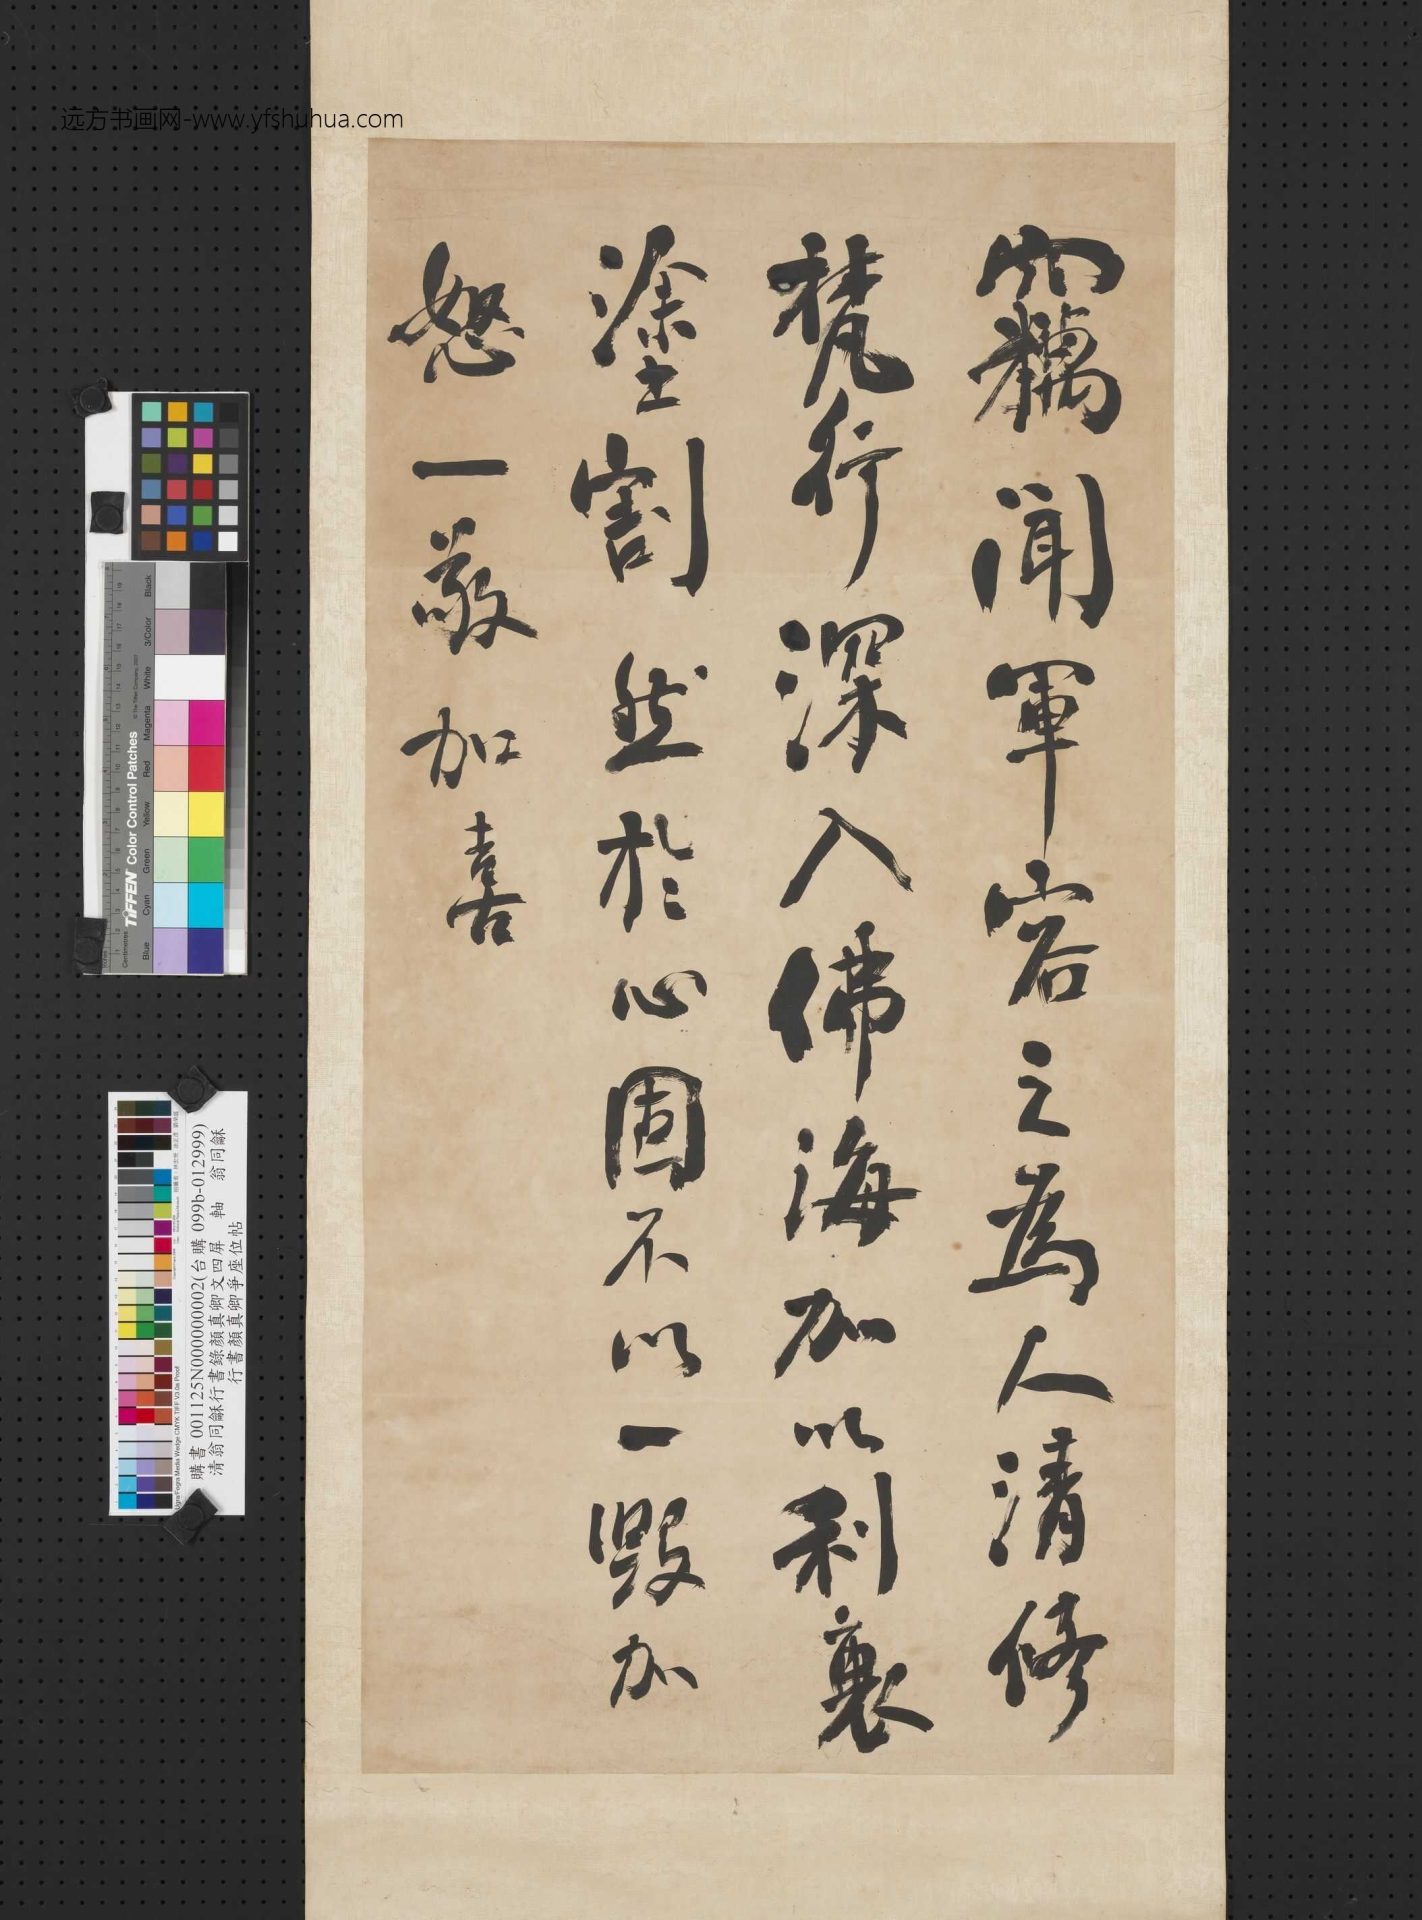 远方书画网-www.yfshuhua.com
竊聞軍容之為人清修
梵行深入佛海加以利衰
塗割恝於心固不以一毀加
怒一敬加喜
TIFFEN Color Control Patches
Centimetres
Blue Cyan Green Yellow Red Magenta White 3/Color Black
購書 001125N000000002(台購 099b-012999)
清翁同龢行書錄顏真卿文四屏 軸 翁同龢
行書顏真卿爭座位帖
Ugra/Fogra Media Wedge CMYK TIFF V3.0a Proof